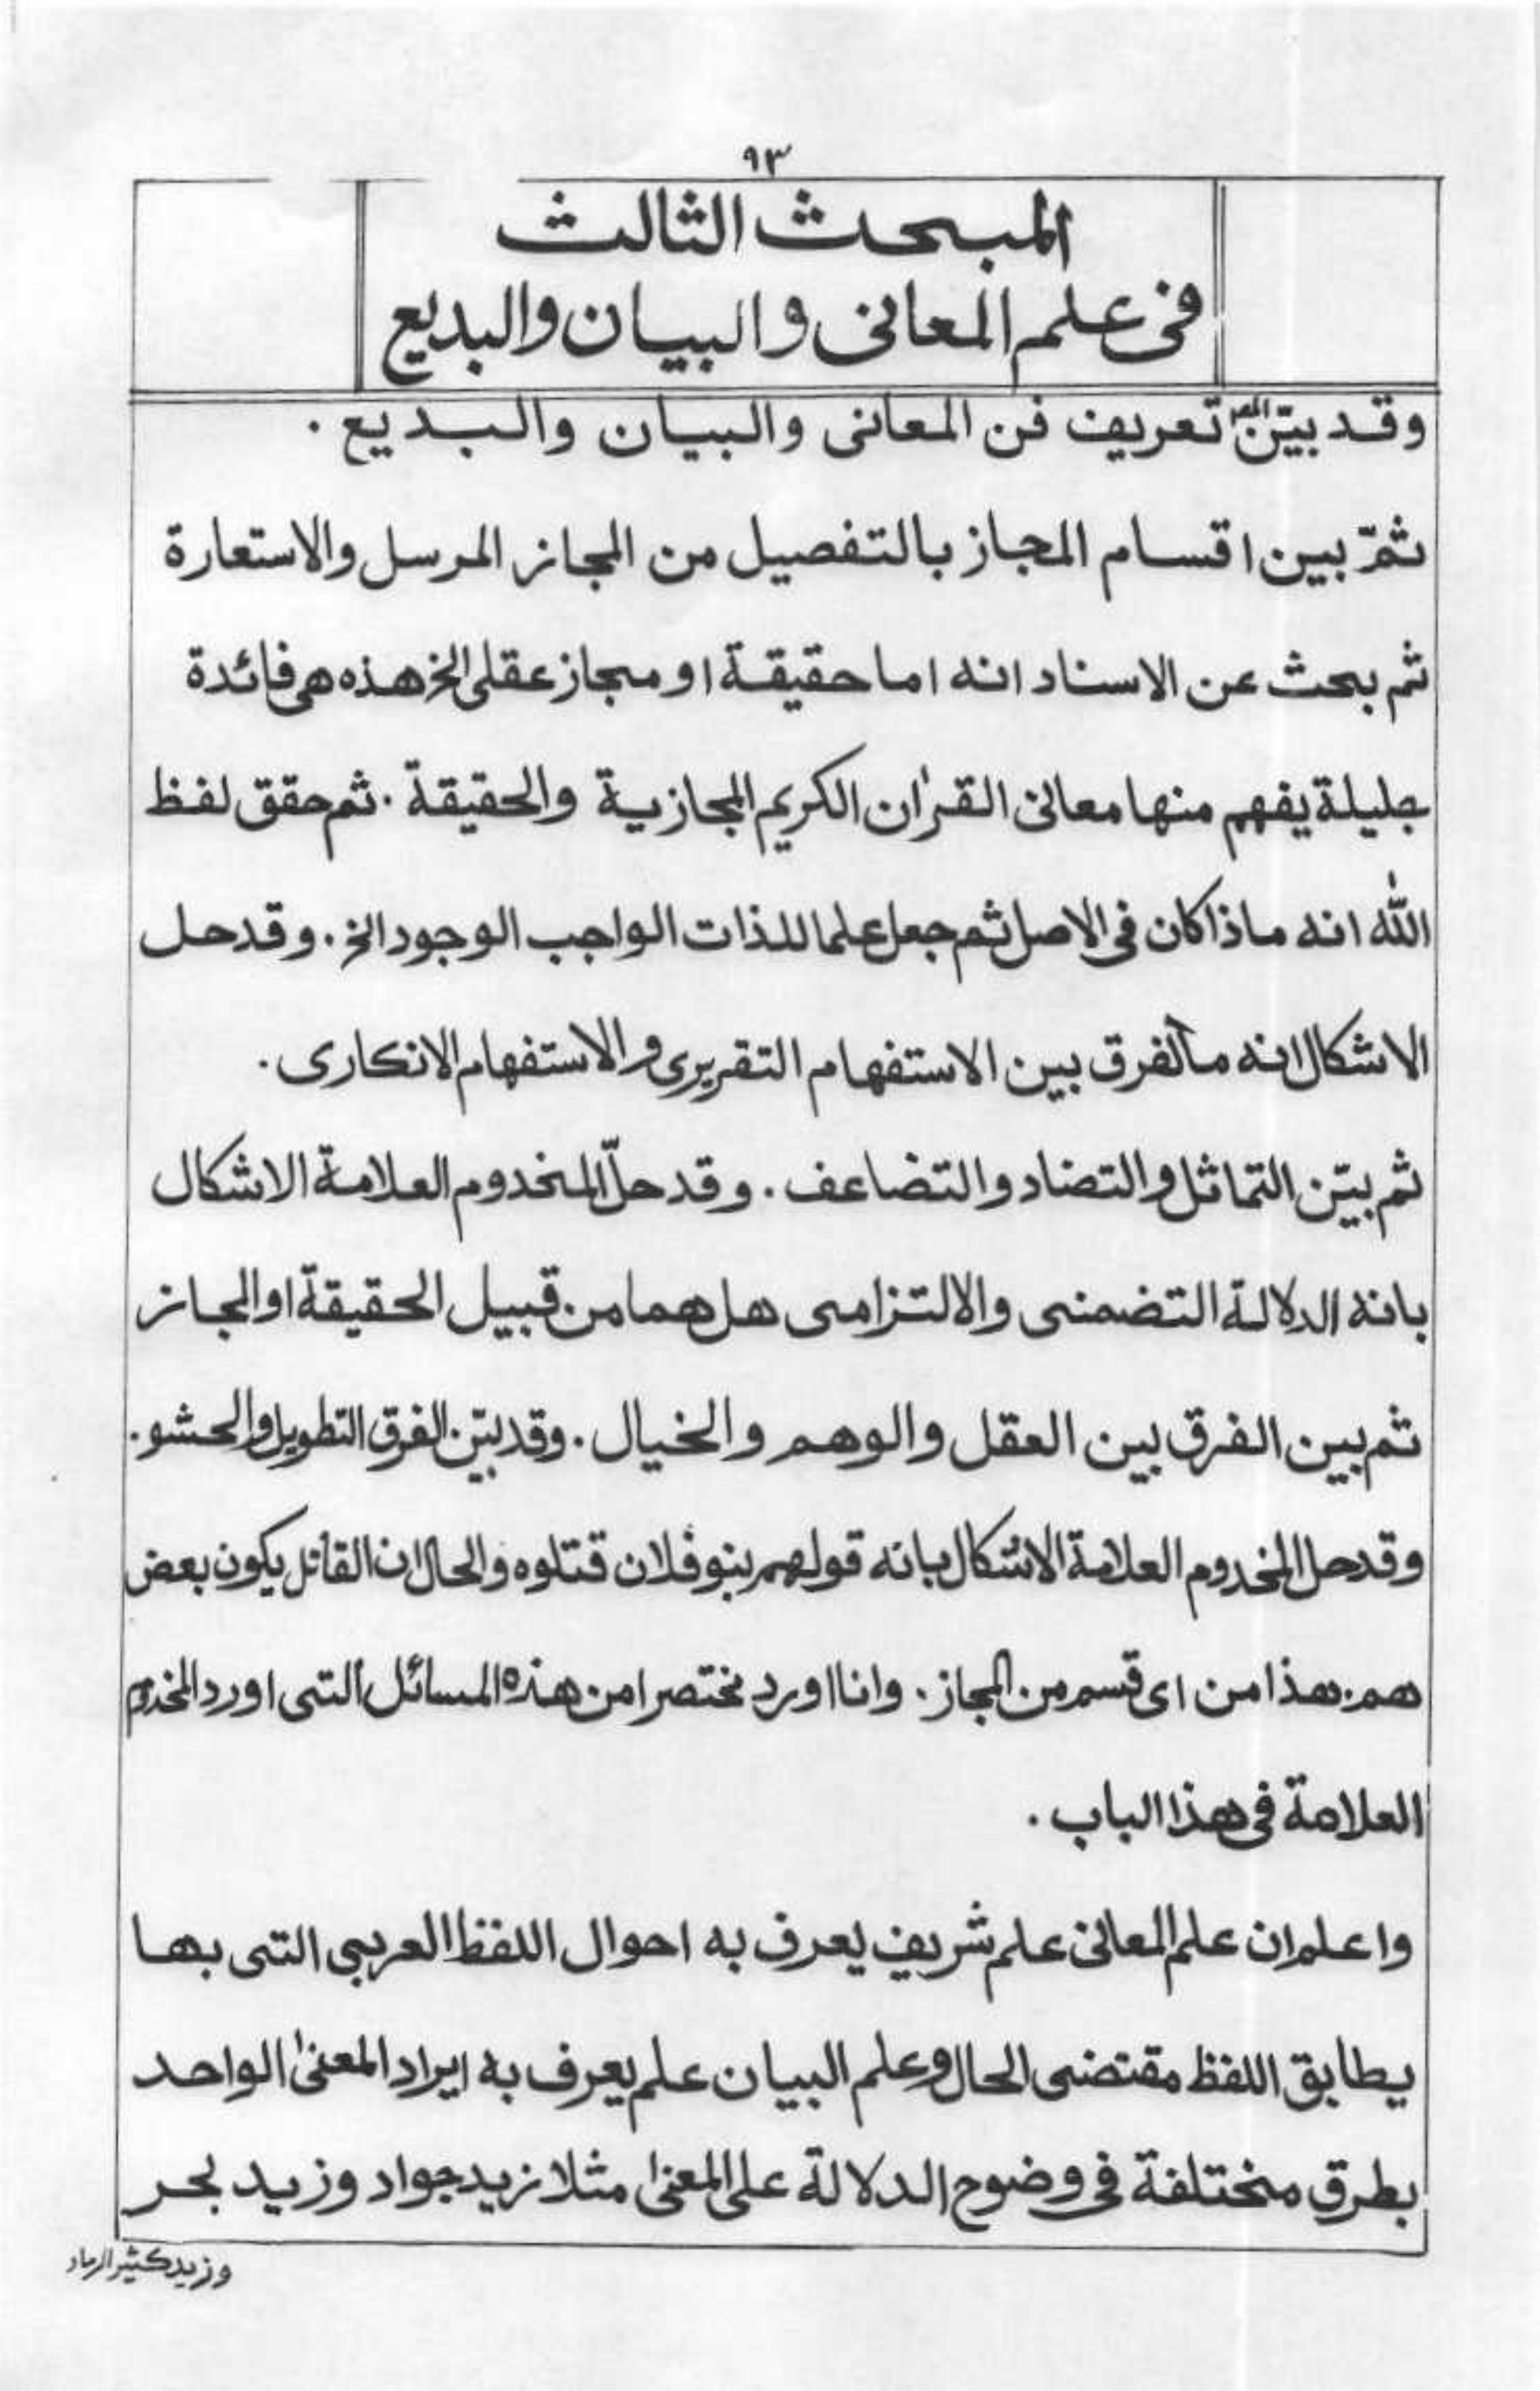 ٩٣
المبحث الثالث
فى علم المعانى والبيان والبديع
وقد بيّن المص تعريف فن المعانى والبيان والبديع .
ثمّ بين اقسام المجاز بالتفصيل من المجاز المرسل والاستعارة
ثم بحث عن الاسناد انه اما حقيقة او مجاز عقلى الخ هذه هى فائدة
جليلة يفهم منها معانى القرٰان الكريم المجازية والحقيقة . ثم حقق لفظ
اللّٰه انه ماذا كان فى الاصل ثم جعل علما للذات الواجب الوجود الخ . وقد حل
الاشكال انه ما الفرق بين الاستفهام التقريرى والاستفهام الانكارى .
ثم بيّن التماثل والتضاد والتضاعف . وقد حلّ المخدوم العلامة الاشكال
بانه الدلالة التضمنى والالتزامى هل هما من قبيل الحقيقة او المجاز
ثم بين الفرق بين العقل والوهم والخيال . وقد بيّن الفرق التطويل والحشو .
وقد حل المخدوم العلامة الاشكال بانه قولهم بنو فلان قتلوه والحال ان القاتل يكون بعض
هم . هذا من اى قسم من المجاز . وانا اورد مختصرا من هذه المسائل التى اورد المخدوم
العلامة فى هذا الباب .
واعلم ان علم المعانى علم شريف يعرف به احوال اللفظ العربى التى بها
يطابق اللفظ مقتضى الحال وعلم البيان علم يعرف به ايراد المعنىٰ الواحد
بطرق مختلفة فى وضوح الدلالة على المعنىٰ مثلا زيد جواد وزيد بحر
وزيد كثير الرماد